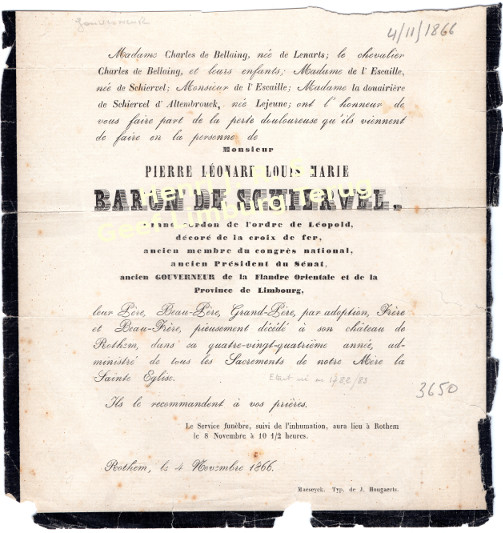 Gouverneur
4/11/1866
Madame Charles de Bellaing, née de Lenarts; le chevalier
Charles de Bellaing, et leurs enfants; Madame de l'Escaille,
née de Schiervel; Monsieur de l'Escaille; Madame la douairière
de Schiervel d'Altembrouck, née Lejeune; ont l'honneur de
vous faire part de la perte douloureuse qu'ils viennent
de faire en la personne de
Monsieur
PIERRE LÉONARD LOUIS MARIE
BARON DE SCHIERVEL,
Grand cordon de l'ordre de Léopold,
décoré de la croix de fer,
ancien membre du congrès national,
ancien Président du Sénat,
ancien GOUVERNEUR de la Flandre Orientale et de la
Province de Limbourg,
leur Père, Beau-Père, Grand-Père, par adoption, Frère
et Beau-Frère, pieusement décédé à son château de
Rothem, dans sa quatre-vingt-quatrième année, ad-
ministré de tous les Sacrements de notre Mère la
Sainte Eglise.
Etait né en 1782/83
3650
Ils le recommandent à vos prières.
Le Service funèbre, suivi de l'inhumation, aura lieu à Rothem
le 8 Novembre à 10 1/2 heures.
Rothem, le 4 Novembre 1866.
Maeseyck. Typ. de J. Bougaerts.